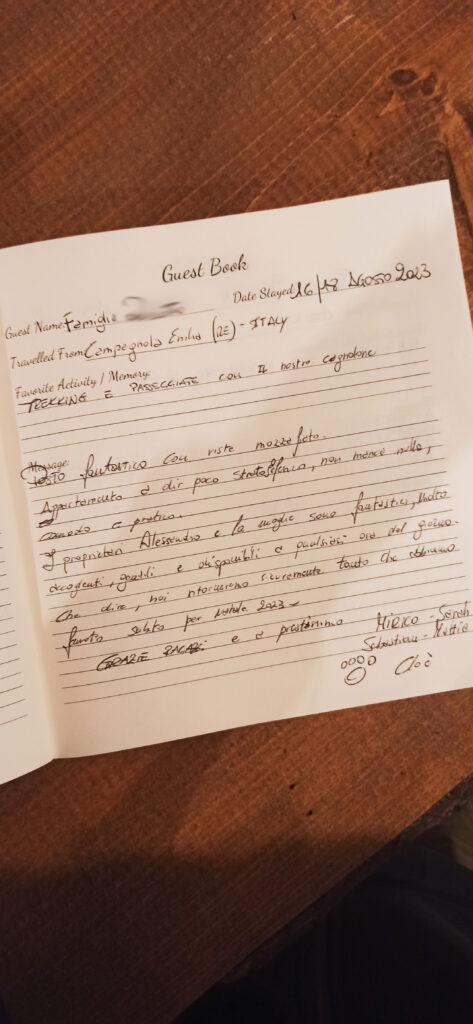 Guest Book
Guest Name: Famiglia
Date Stayed 16/18 AGOSTO 2023
Travelled From Campagnola Emilia (RE) - ITALY
Favorite Activity / Memory:
TREKKING E PASSEGGIATE con il nostro cagnolone
Message:
Posto fantastico con viste mozzafiato.
Appartamento a dir poco stratosferico, non manca nulla,
comodo e pratico.
I proprietari Alessandro e la moglie sono fantastici, molto
accoglienti, gentili e disponibili a qualsiasi ora del giorno.
Che dire, noi ritorneremo sicuramente tanto che abbiamo
subito per Natale 2023 -
GRAZIE RAGAZZI e a prestissimo
MIRKO - Sarah
Sebastian - Mattia
Cloè